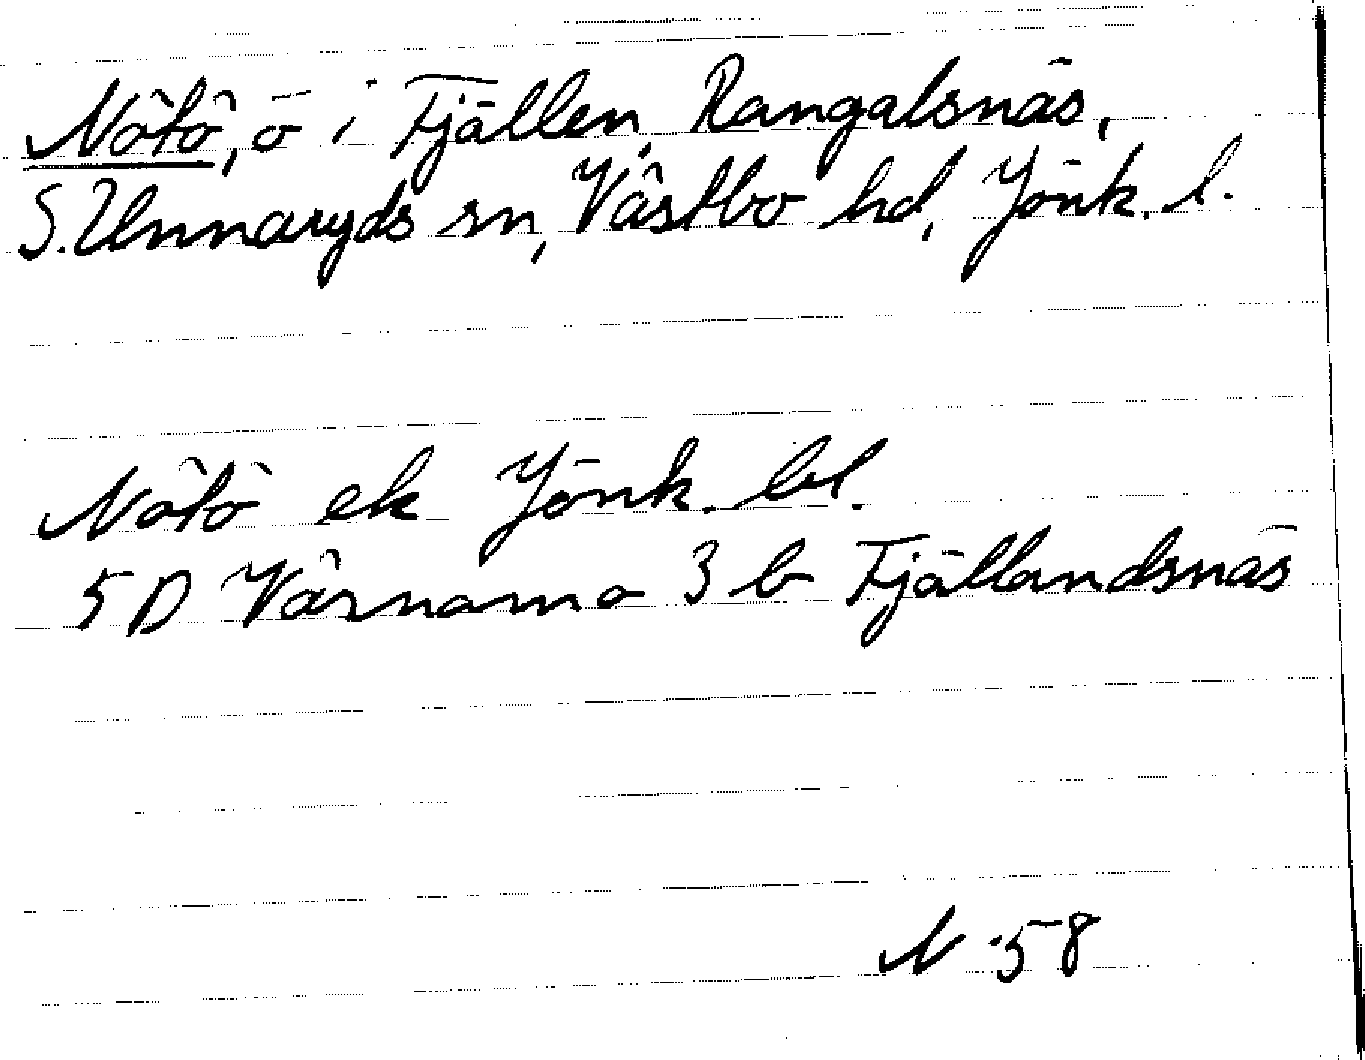 Nötö, ö i Fjällen, Rangalsnäs,
S. Unnaryds sn, Västbo hd, Jönk. l.
Nötö ek Jönk. bl.
5D Värnamo 3 b Fjällandsnäs
N 58